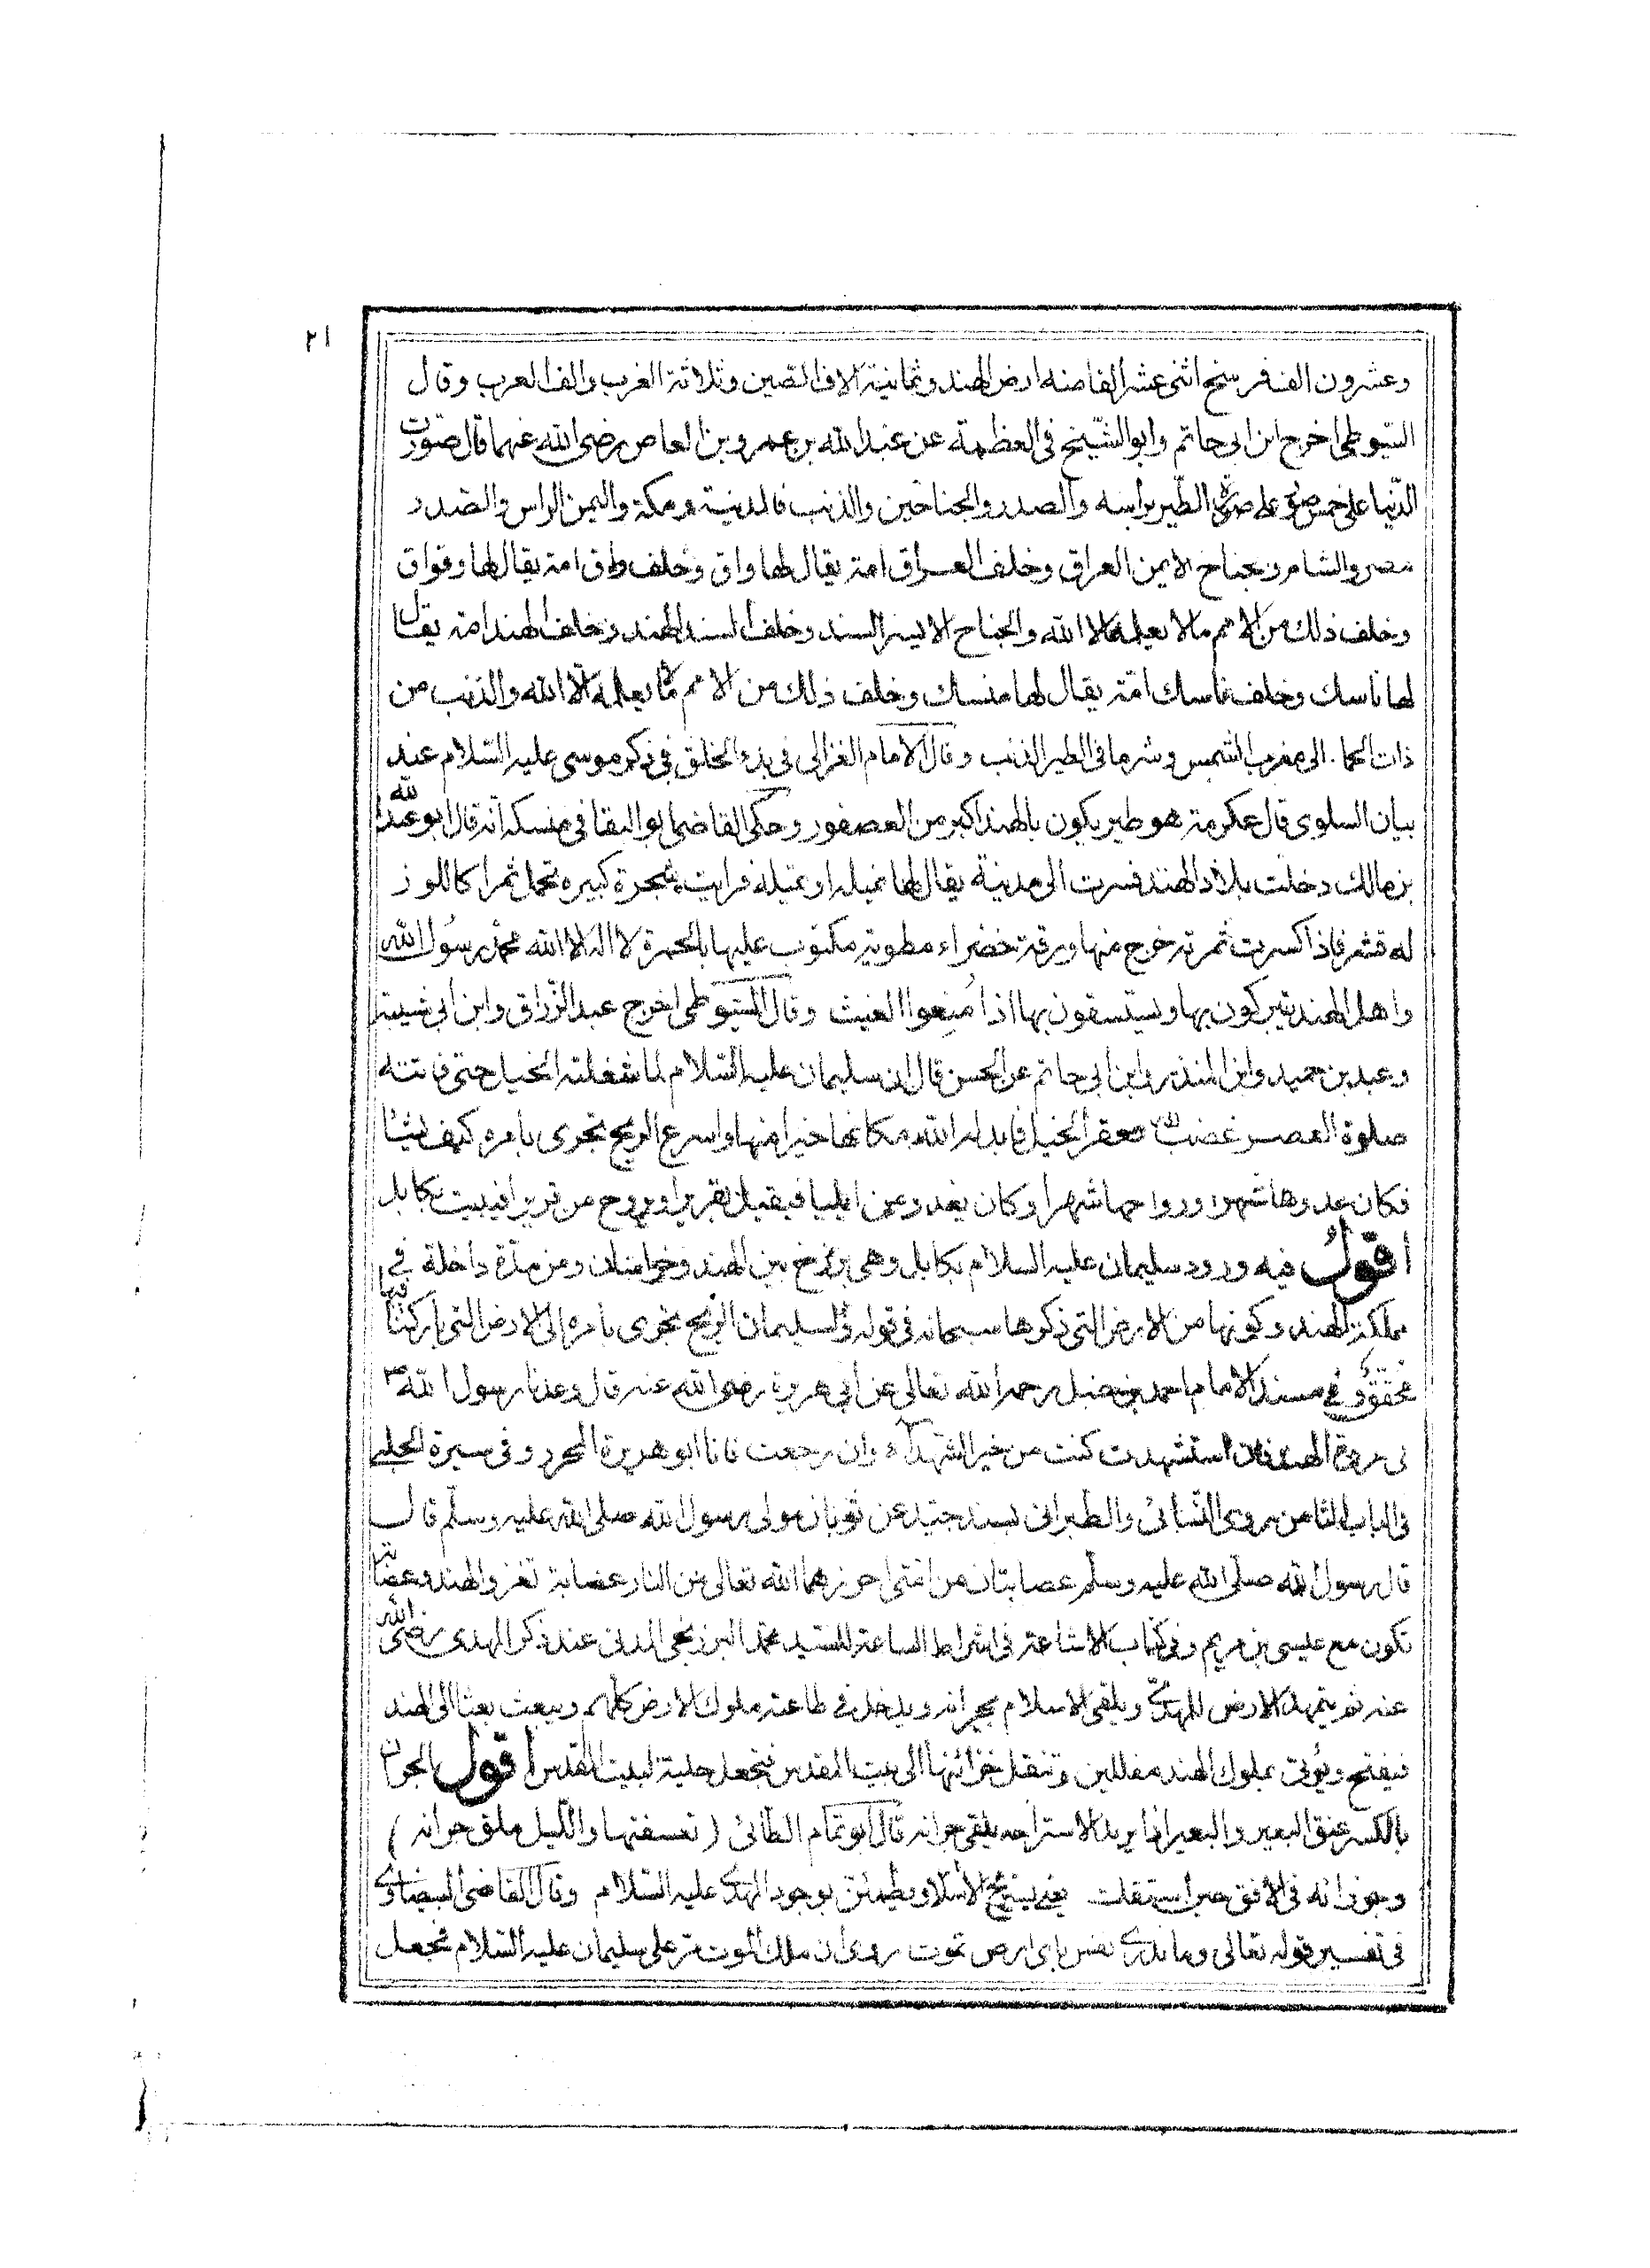 ٢١
وعشرون الف فرسخ اثنى عشر الفا منه ارض الهند وثمانية الاف الصين وثلاثة الغرب والف العرب وقال
السّيوطى اخرج ابن ابى حاتم وابو الشّيخ فى العظمة عن عبد الله بن عمرو بن العاص رضى الله عنهما قال صوّرت
الدّنيا على خمس صور على صورة الطّير براسه والصدر والجناحين والذنب فالمدينة ومكة واليمن الراس والصدر
مصر والشام والجناح الايمن العراق وخلف العراق امة يقال لها واق وخلف واق امة يقال لها وقواق
وخلف ذلك من الامم ما لا يعلمه الا الله والجناح الايسر السند وخلف السند الهند وخلف الهند امة يقال
لها ناسك وخلف ناسك امّة يقال لها منسك وخلف ذلك من الامم ما لا يعلمه الا الله والذنب من
ذات الحما. الى مغرب الشمس وشر ما فى الطير الذنب وقال الامام الغزالى فى بدء الخلق فى ذكر موسى عليه السّلام عند
بيان السلوى قال عكرمة هو طير يكون بالهند اكبر من العصفور وحكى القاضى ابو البقا فى منسكه انه قال ابو عبد الله
بن مالك دخلت بلاد الهند فسرت الى مدينة يقال لها نميله او ثميله فرايت شجرة كبيره تحمل ثمرا كاللوز
له قشر فاذا كسرت ثمرته خرج منها ورقة خضراء مطوية مكتوب عليها بالحمرة لا اله الا الله محمّد رسول الله
واهل الهند يتبركون بها ويستسقون بها اذا مُنِعوا الغيث وقال السّيوطى اخرج عبد الرّزاق وابن ابى شيبة
وعبد بن حميد وابن المنذر وابن ابى حاتم عن الحسن قال ان سليمان عليه السّلام لما شغلته الخيل حتى فاتته
صلوة العصر غضب لله فعقر الخيل فابدله الله مكانها خيرا منها واسرع الريح تجرى بامره كيف يشا
فكان غدوها شهرا ورواحها شهرا وكان يغدو من ايليا فيقيل بقريرا ويروح من قريرا فيبيت بكابل
اقول فيه ورود سليمان عليه السلام بكابل وهى برزخ بين الهند وخراسان ومن مدّة داخلة فى
مملكة الهند وكونها من الارض التى ذكرها سبحانه فى قوله ولسليمان الريح تجرى بامره الى الارض التى باركنا فيها
محقّق وفى مسند الامام احمد بن حنبل رحمه الله تعالى عن ابى هريرة رضى الله عنه قال وعدنا رسول الله ص
فى غزوة الهند فان استشهدت كنت من خير الشهداء وان رجعت فانا ابو هريرة المحرر وفى سيرة الحلبى
فى الباب الثامن روى النّسائى والطّبرانى بسند جيّد عن ثوبان مولى رسول الله صلى الله عليه وسلّم قال
قال رسول الله صلّى الله عليه وسلّم عصابتان من امّتى احرزهما الله تعالى من النار عصابة تغزو الهند وعصابة
تكون مع عيسى بن مريم وفى كتاب الاشاعة فى اشراط الساعة للسّيد محمّد البرزنجى المدنى عند ذكر المهدى رضى الله
عنه ثم يتمهد الارض للمهدىّ ويلقى الاسلام بجرانه ويدخل فى طاعته ملوك الارض كلهم ويبعث بعثا الى الهند
فيفتح ويُؤتى بملوك الهند مغللين وتنقل خزائنها الى بيت المقدس فتجعل حلية لبيت المقدس اقول الجران
بالكسر عنق البعير والبعير اذا يريد الاستراحة يلقى جرانه قال ابو تمّام الطائى (تعسفتها والليل ملق جرانه)
وجوزائه فى الافق حين استقلت يعنى يستريح الاسلام ويطمئن بوجود المهدى عليه السّلام وقال القاضى البيضاوى
فى تفسير قوله تعالى وما تدرى نفس باى ارض تموت روى ان ملك الموت مر على سليمان عليه السّلام فجعل